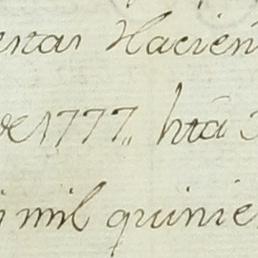 estas Hacien
de 1777,, hta
mil quinie